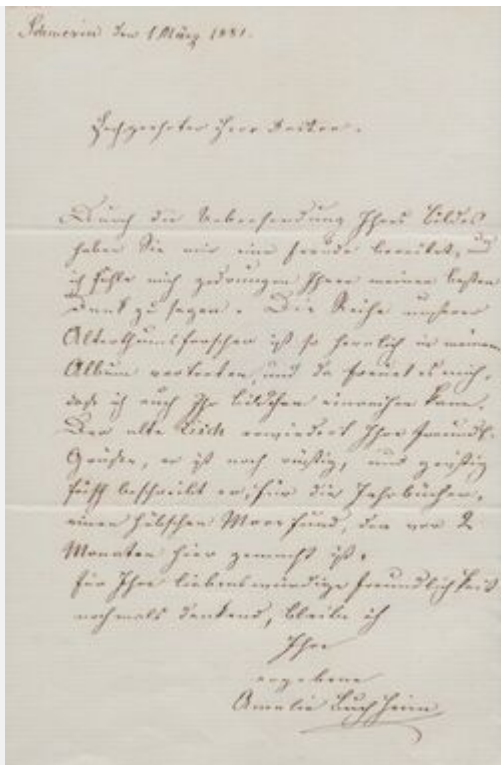 Schwerin den 1 März 1881.
Hochgeehrter Herr Doctor.
Durch die Uebersendung Ihres Bildes
haben Sie mir eine Freude bereitet, und
ich fühle mich gedrungen Ihnen meinen besten
Dank zu sagen. Die Reihe unserer
Alterthumsforscher ist so herrlich in meinem
Album vertreten, und da freuet es mich,
daß ich auch Ihr Bildchen einreihen kann.
Der alte Lisch erwiedert Ihre freundl.
Grüße, er ist noch rüstig, und geistig
frisch beschreibt er, für die Jahrbücher,
einen hübschen Moorfund, der vor 2
Monaten hier gemacht ist.
Für Ihre liebenswürdige Freundlichkeit
nochmals dankend, bleibe ich
Ihre
ergebene
Amalie Buchheim